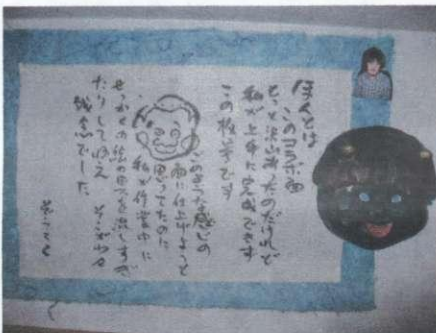 ほんとは
このコラボ面
もっと沢山あったのだけれど
私が上手に完成できず
この枚数です
このような感じの
面に仕上げようと
思ってたのに
私が作業中に
せっかくの絵の
たりして
残念でした。